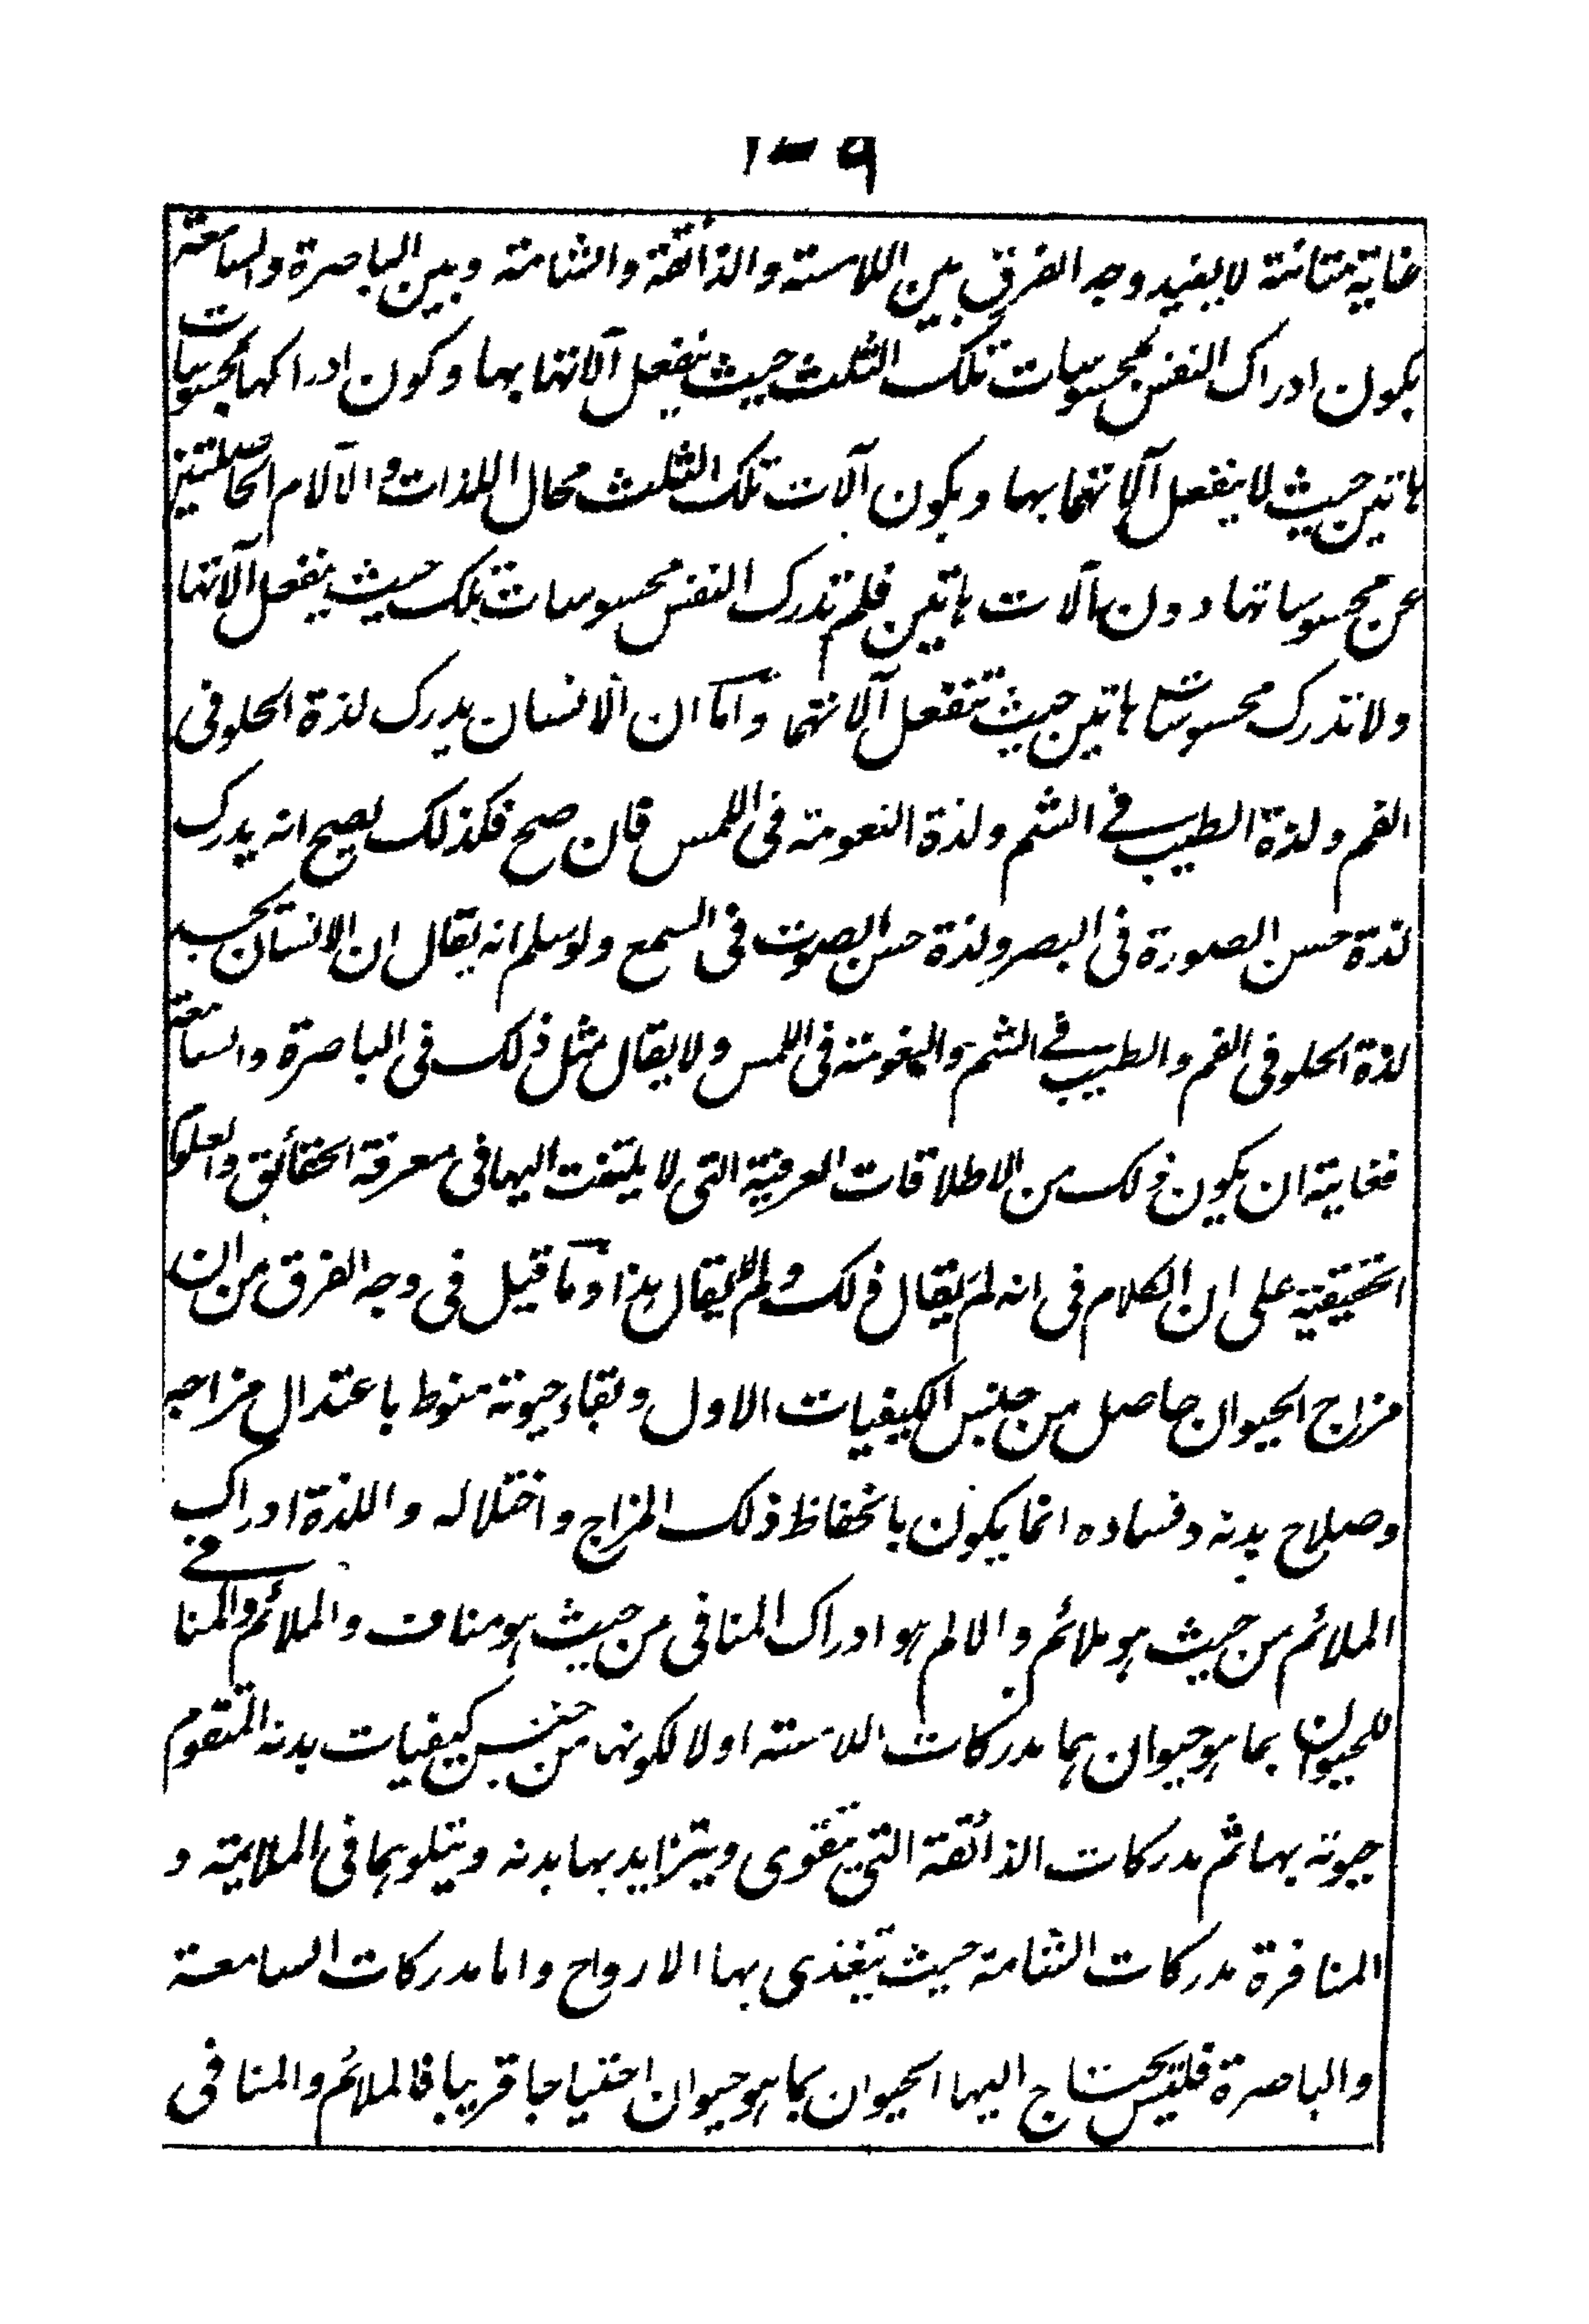 ١٠٩
غاية متانته لا يفيد وجه الفرق بين اللامسته والذائقة والشامته وبين الباصرة والسامعة
بكون ادراك النفس بمحسوسات تلك الثلث حيث ينفعل آلاتها بها وكون ادراكها بمحسوسات
هاتين حيث لا ينفعل آلاتهما بها وبكون آلات تلك الثلث محال اللذات والآلام الحاصلتين
عن محسوساتها دون آلات هاتين فلم تدرك النفس محسوسات تلك حيث ينفعل آلاتها
ولا تدرك محسوسات هاتين حيث تنفعل آلاتهما واما ان الانسان يدرك لذة الحلو فى
الفم ولذة الطيب فے الشم ولذة النعومته فى اللمس فان صح فكذلك يصح انه يدرك
لذة حسن الصورة فى البصر ولذة حسن الصوت فى السمع ولو سلم انه يقال ان الانسان يجد
لذة الحلو فى الفم والطيب فے الشم والنعومته فى اللمس ولا يقال مثل ذلك فى الباصرة والسامعة
فغايته ان يكون ذلك من الاطلاقات العرفية التى لا يلتفت اليها فى معرفة الحقائق والعلوم
الحقيقية على ان الكلام فى انه لم يقال ذلك ولم لا يقال هذا وما قيل فى وجه الفرق من ان
مزاج الحيوان حاصل من جنس الكيفيات الاول وبقاء حيوته منوط باعتدال مزاجه
وصلاح بدنه وفساده انما يكون بانحفاظ ذلك المزاج واختلاله واللذة ادراك
الملائم من حيث هو ملائم والالم هو ادراك المنافى من حيث هو مناف والملائم والمنافے
للحيوان بما هو حيوان هما مدركات اللامسته اولا لكونها من جنس كيفيات بدنه المتقوم
حيوته بها ثم مدركات الذائقة التى يتقوى ويتزايد بها بدنه ويتلوهما فى الملايمة و
المنافرة مدركات الشامة حيث تغذى بها الارواح واما مدركات السامعة
والباصرة فليس يحتاج اليها الحيوان بما هو حيوان احتياجا قريبا فالملائم والمنافى